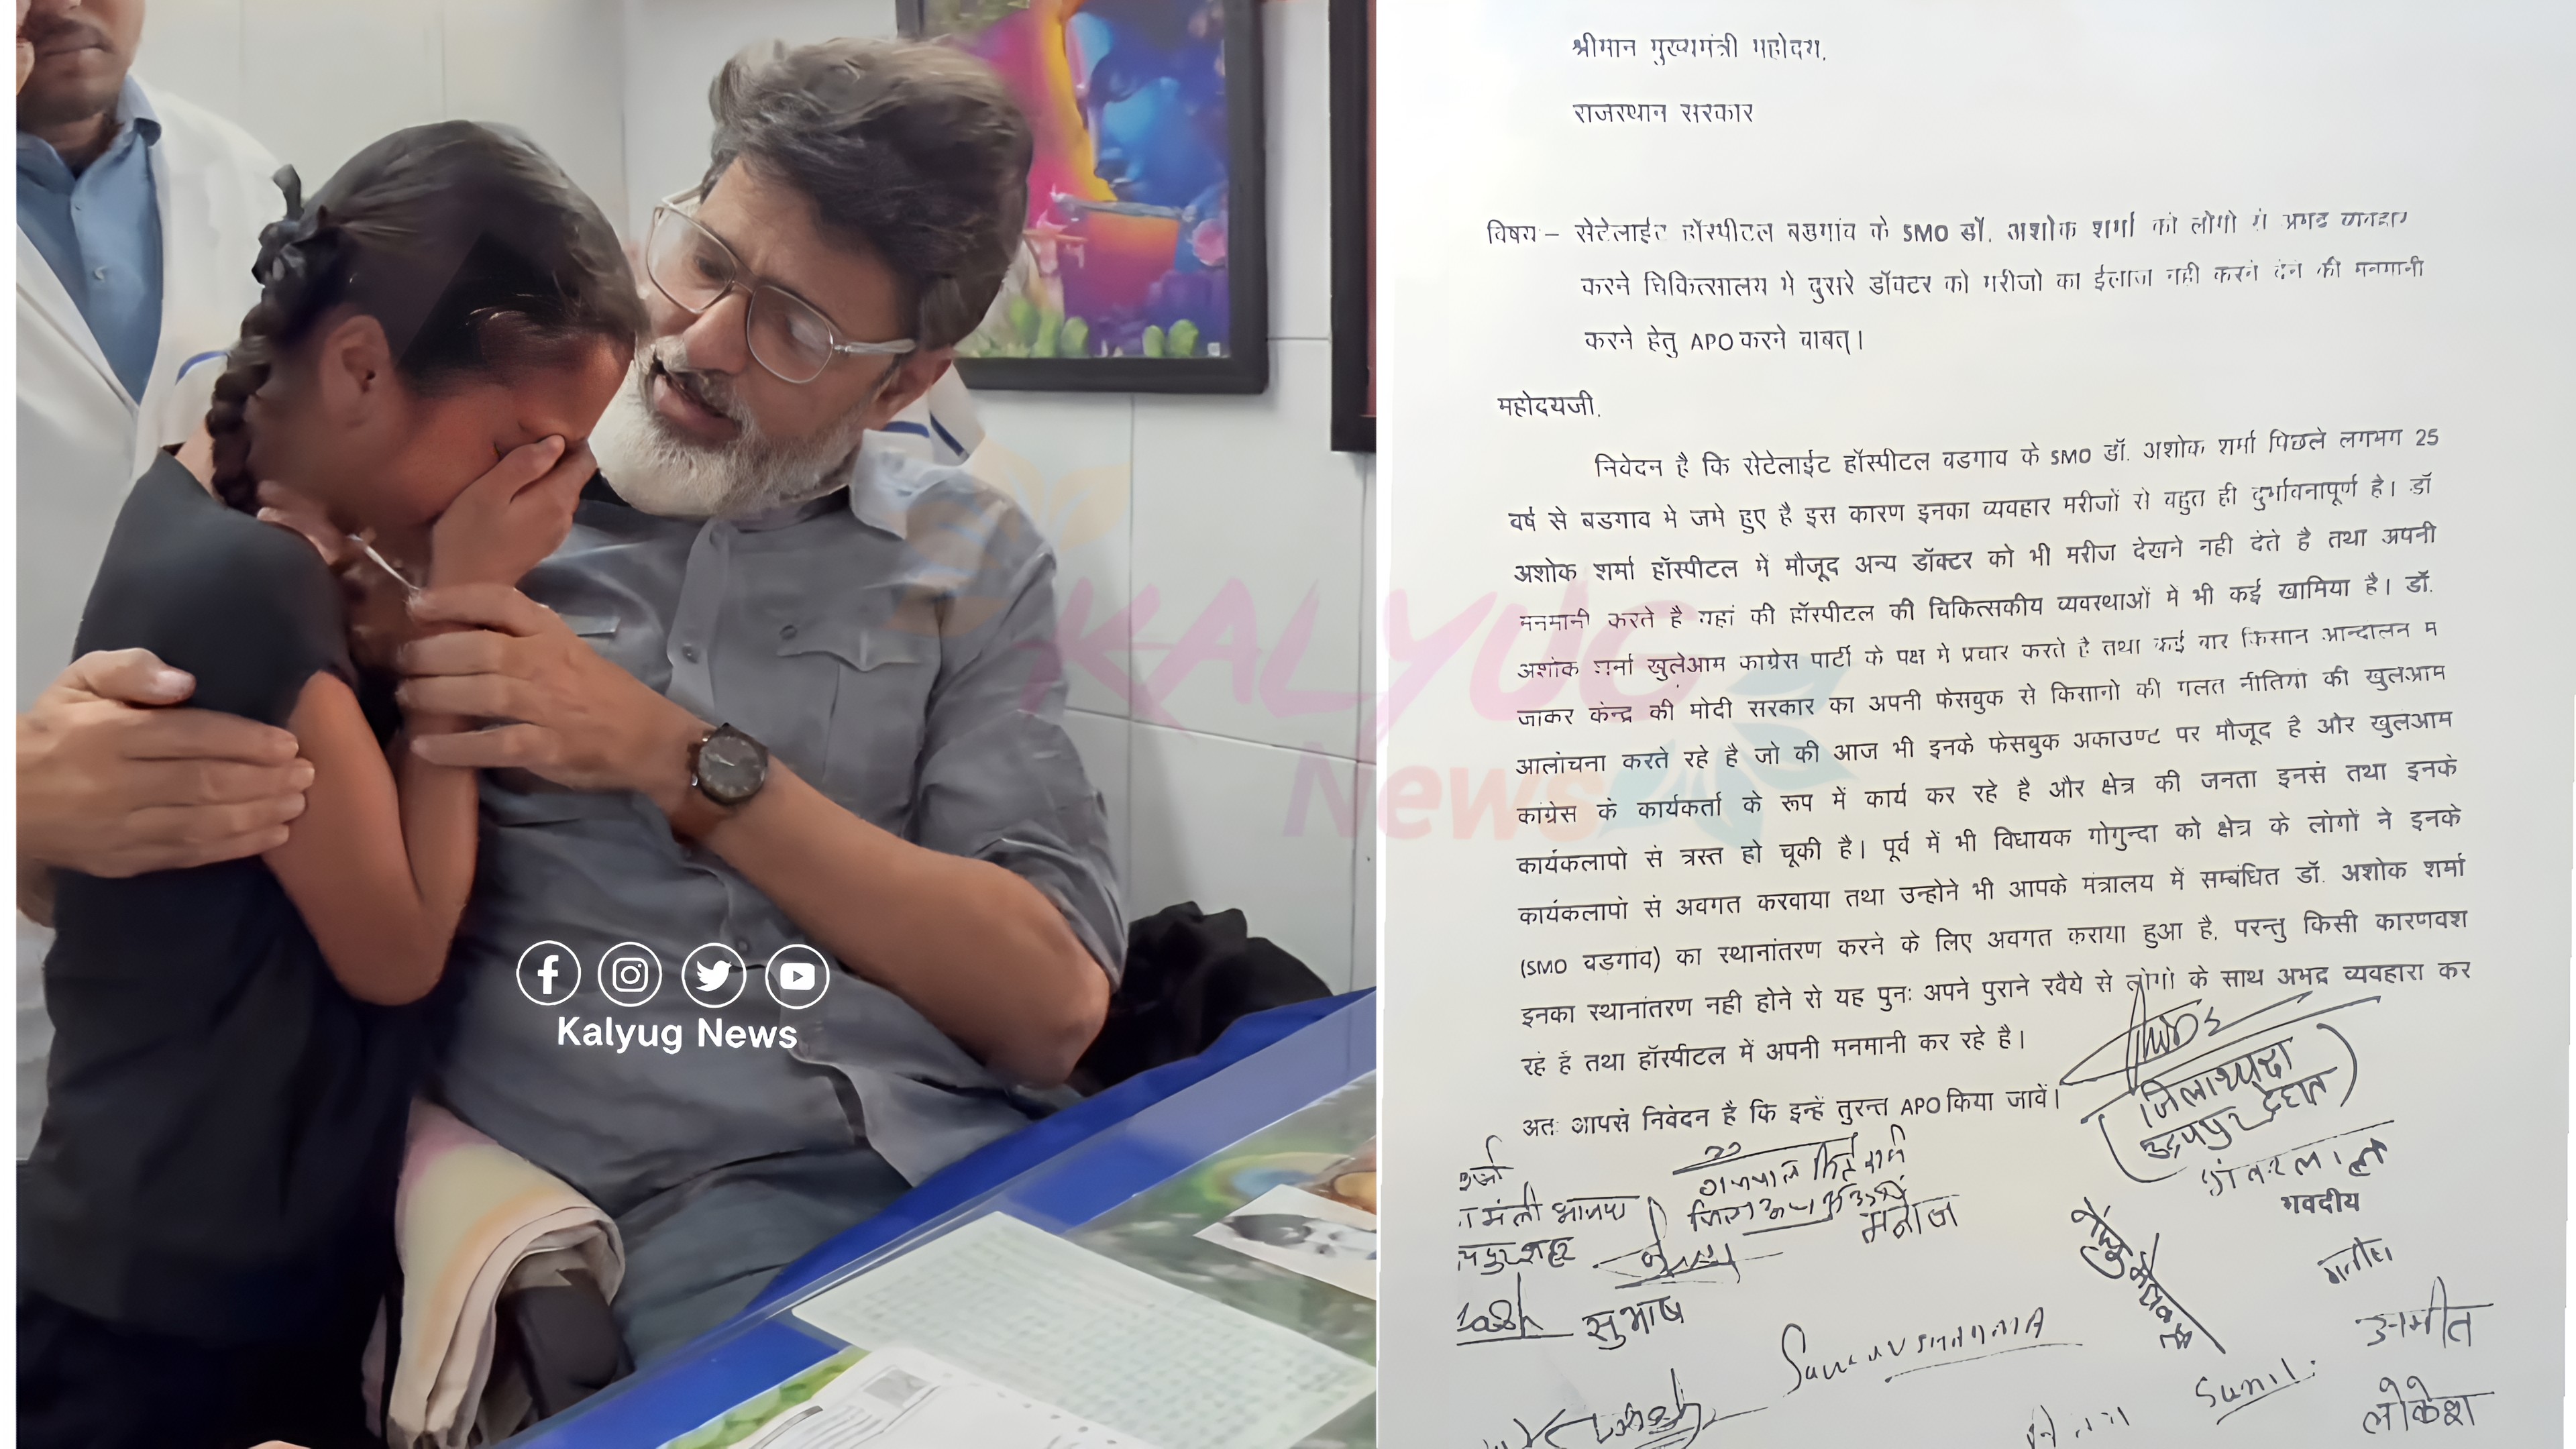 Kalyug News
KALYUG
News
श्रीमान मुख्यमंत्री महोदय,
राजस्थान सरकार
विषय – सेटेलाईट हॉस्पीटल बडगांव के SMO डॉ. अशोक शर्मा को लोगो
करने चिकित्सालय मे दुसरे डॉक्टर को मरीजो का ईलाज नही करने देने की मनमानी
करने हेतु APO करने बाबत्।
महोदयजी,
निवेदन है कि सेटेलाईट हॉस्पीटल बडगाव के SMO डॉ. अशोक शर्मा पिछले लगभग 25
वर्ष से बडगाव मे जमे हुए है इस कारण इनका व्यवहार मरीजों से बहुत ही दुर्भावनापूर्ण है। डॉ
अशोक शर्मा हॉस्पीटल में मौजूद अन्य डॉक्टर को भी मरीज देखने नही देते है तथा अपनी
मनमानी करते है यहां की हॉस्पीटल की चिकित्सकीय व्यवस्थाओं मे भी कई खामिया है। डॉ.
अशोक शर्मा खुलेआम काग्रेस पार्टी के पक्ष मे प्रचार करते है तथा कई बार किसान आन्दोलन मे
जाकर केन्द्र की मोदी सरकार का अपनी फेसबुक से किसानो की गलत नीतियों की खुलेआम
आलोचना करते रहे है जो की आज भी इनके फेसबुक अकाउण्ट पर मौजूद है और खुलेआम
कांग्रेस के कार्यकर्ता के रूप में कार्य कर रहे है और क्षेत्र की जनता इनसे तथा इनके
कार्यकलापो से त्रस्त हो चूकी है। पूर्व में भी विधायक गोगुन्दा को क्षेत्र के लोगों ने इनके
कार्यकलापो से अवगत करवाया तथा उन्होने भी आपके मंत्रालय में सम्बंधित डॉ. अशोक शर्मा
(SMO बडगांव) का स्थानांतरण करने के लिए अवगत कराया हुआ है, परन्तु किसी कारणवश
इनका स्थानांतरण नही होने से यह पुनः अपने पुराने रवैये से लोगो के साथ अभद्र व्यवहारा कर
रहे है तथा हॉस्पीटल में अपनी मनमानी कर रहे है।
अतः आपसे निवेदन है कि इन्हें तुरन्त APO किया जावें।
जिलाध्यक्ष
उदयपुर देहात
भंवरलाल
भवदीय
मनोज
सुभाष
अमीत
Sunil
लोकेश